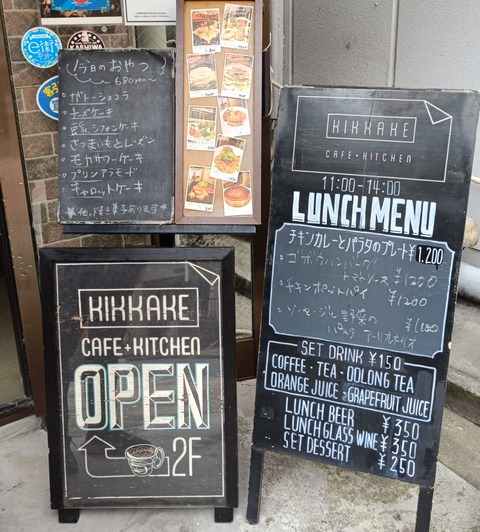 e街
KASHIWA
今日のおやつ
680yen〜
・ガトーショコラ
・チーズケーキ
・豆乳シフォンケーキ
・さつまいもとレーズン
・モカサワーケーキ
・プリンアラモード
・キャロットケーキ
★他、焼き菓子あります
KIKKAKE
CAFE+KITCHEN
OPEN
2F
KIKKAKE
CAFE+KITCHEN
11:00-14:00
LUNCH MENU
チキンカレーとパラタのプレート¥1,200
・ゴボウハンバーグ
トマトソース ¥1200
・チキンポットパイ
¥1200
・ソーセージと野菜の
パスタ アーリオオーリオ
SET DRINK ¥150
COFFEE・TEA・OOLONG TEA
ORANGE JUICE・GRAPEFRUIT JUICE
LUNCH BEER ¥350
LUNCH GLASS WINE ¥350
SET DESSERT ¥250